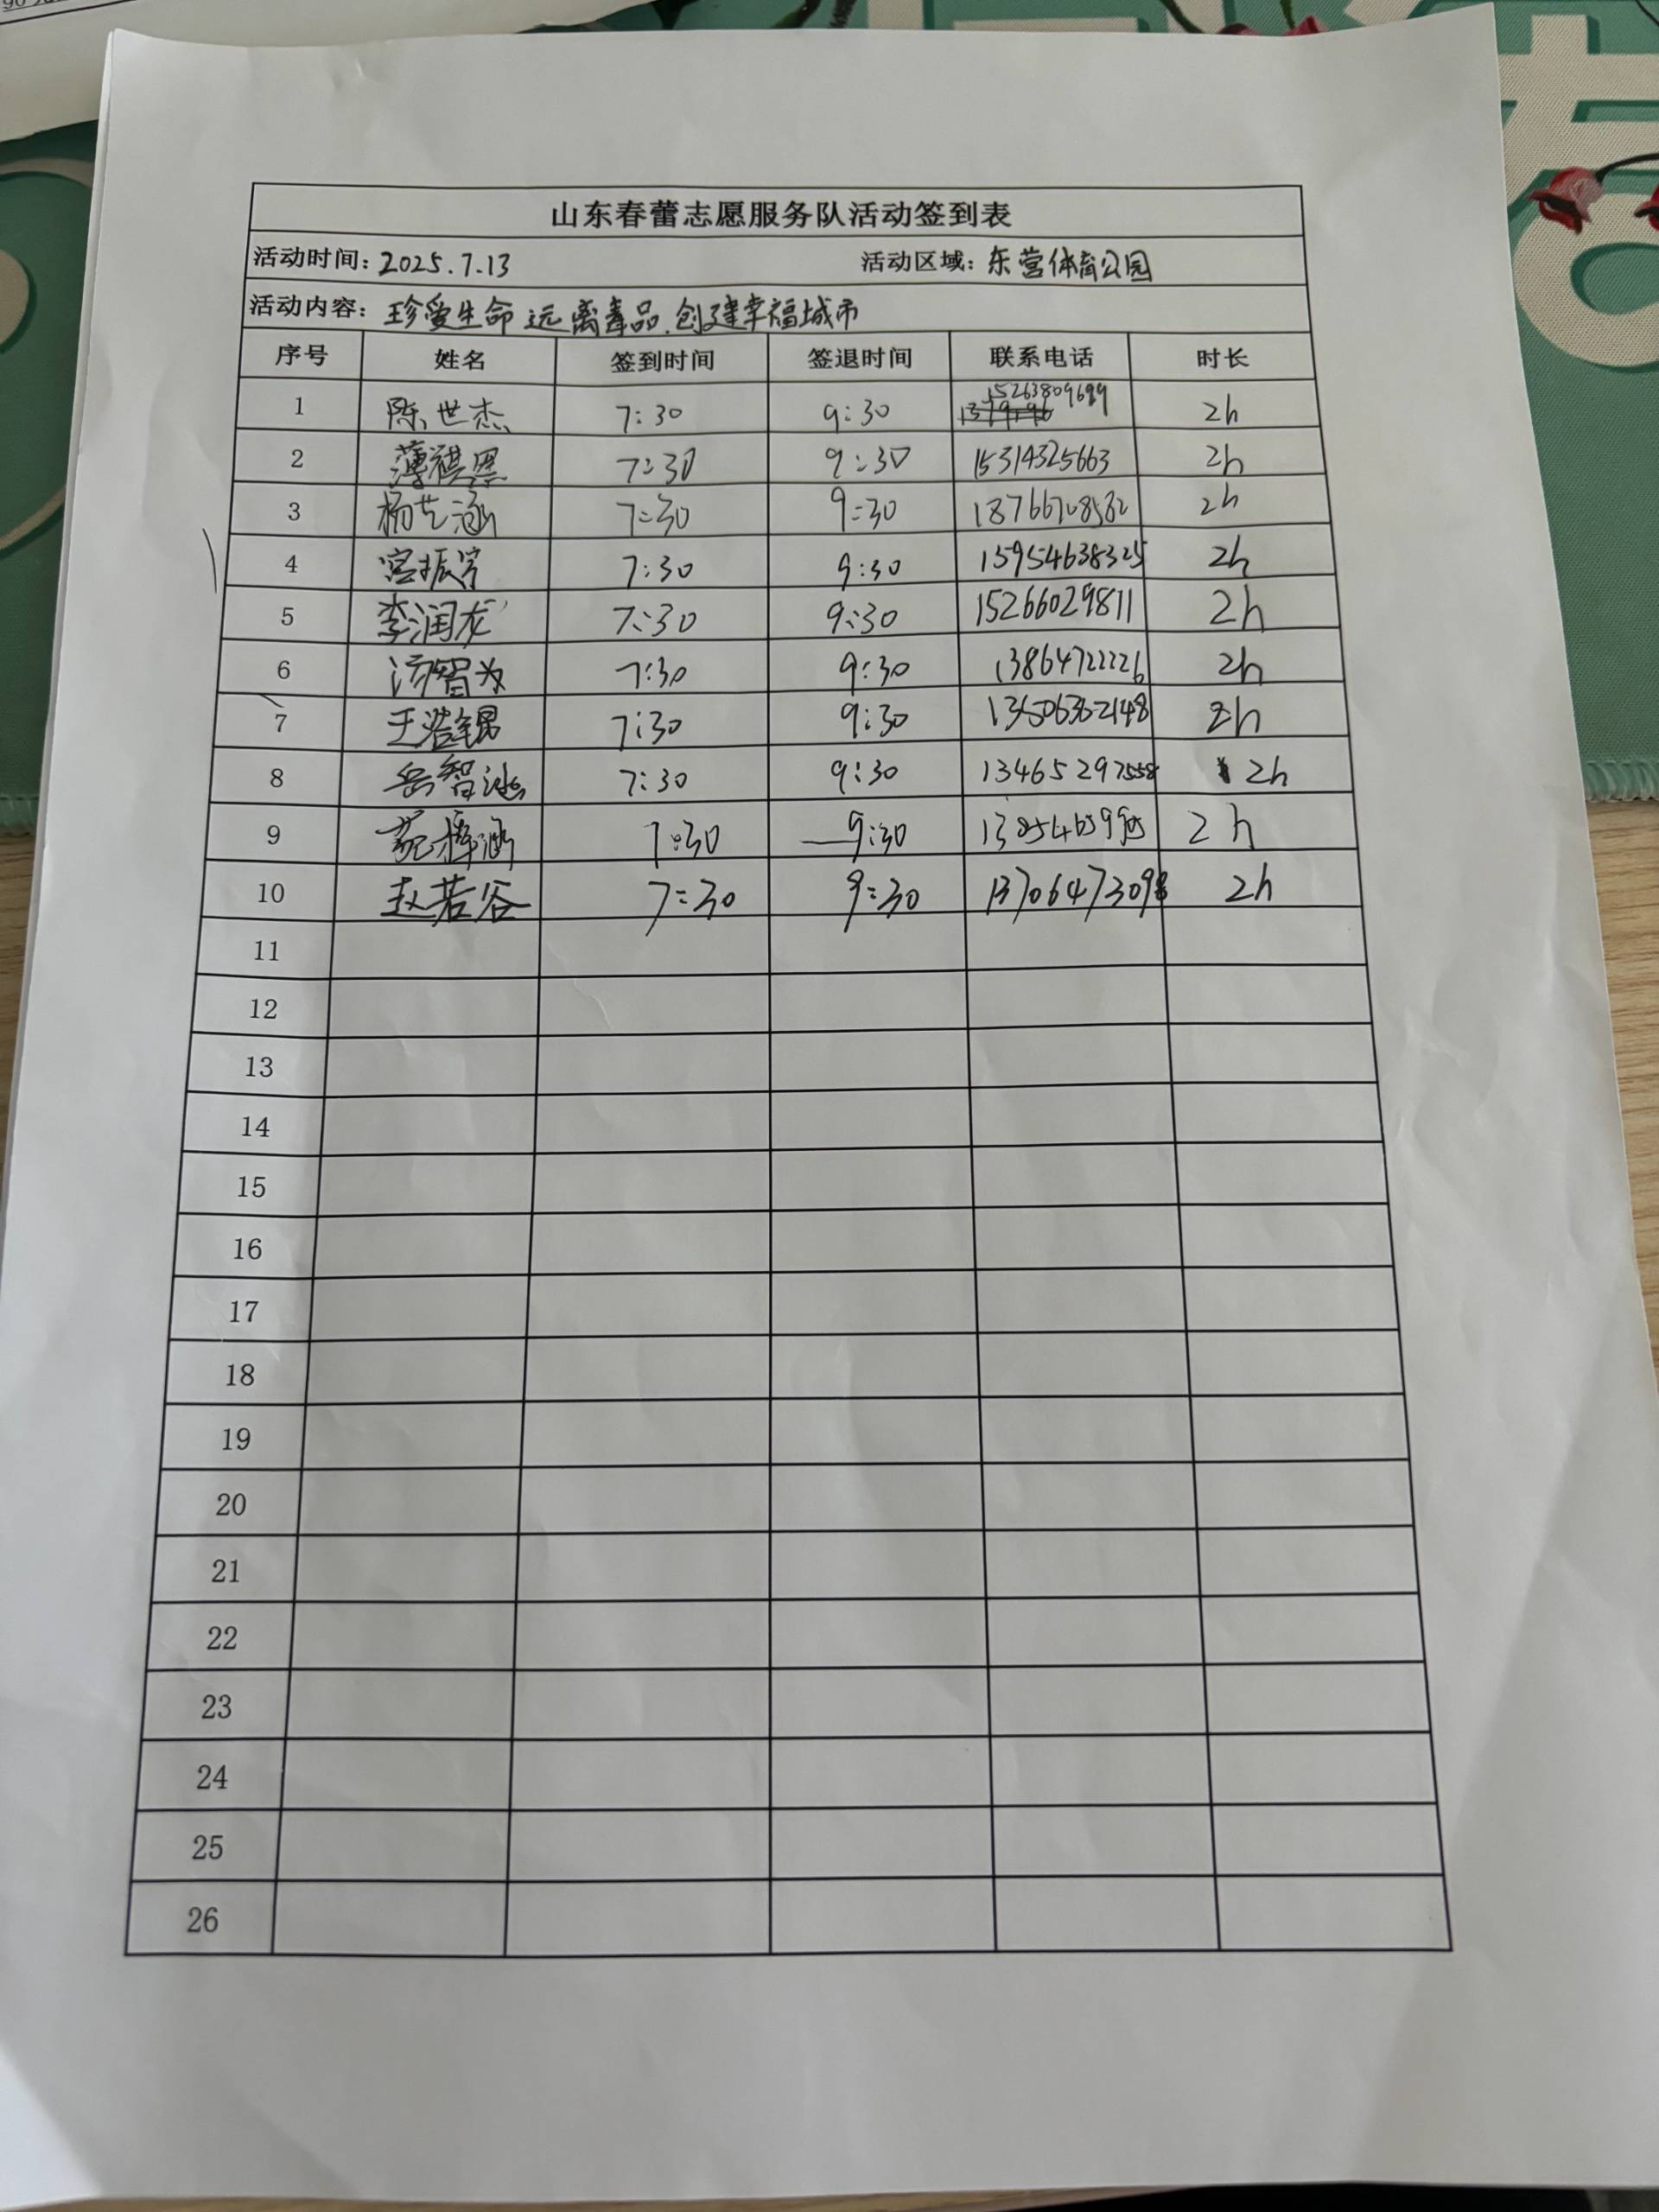 山东春蕾志愿服务队活动签到表
活动时间：2025.7.13 活动区域：东营体育公园
活动内容：珍爱生命 远离毒品.创建幸福城市
序号 姓名 签到时间 签退时间 联系电话 时长
1 陈世杰 7:30 9:30 15263809699 2h
2 薄祺 7:30 9:30 15314325663 2h
3 杨艺涵 7:30 9:30 18766708582 2h
4 宫振宇 7:30 9:30 15954638325 2h
5 李润龙 7:30 9:30 15266029871 2h
6 智为 7:30 9:30 13864722226 2h
7 王浩锟 7:30 9:30 2h
8 岳智 7:30 9:30 13465297558 2h
9 涵 7:30 9:30 2h
10 赵若谷 7:30 9:30 13706473098 2h
11
12
13
14
15
16
17
18
19
20
21
22
23
24
25
26